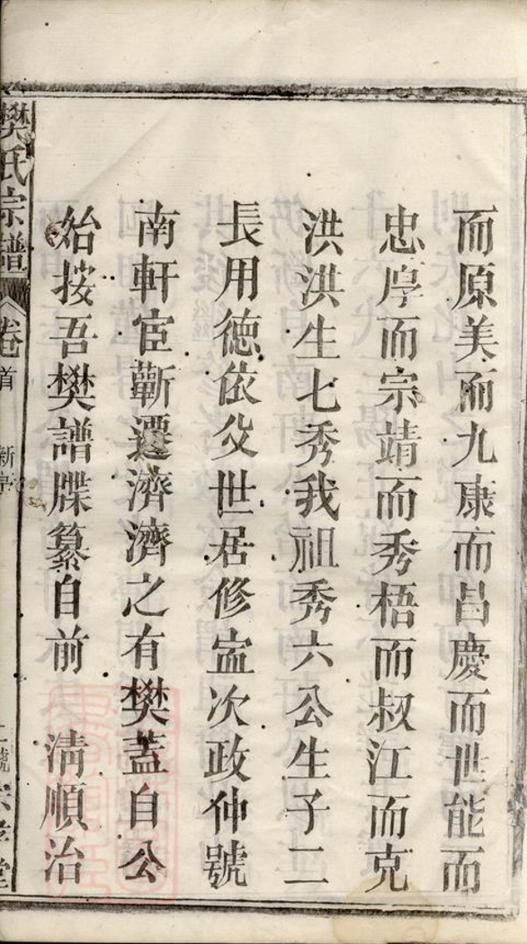 而原美而九康而昌慶而世能而
忠厚而宗靖而秀梧而叔江而克
洪洪生七秀我祖秀六公生子二
長用德依父世居修寍次政仲號
南軒宦蘄遷濟濟之有樊蓋自公
始按吾樊譜牒纂自前　淸順治
樊氏宗譜　卷首　新序